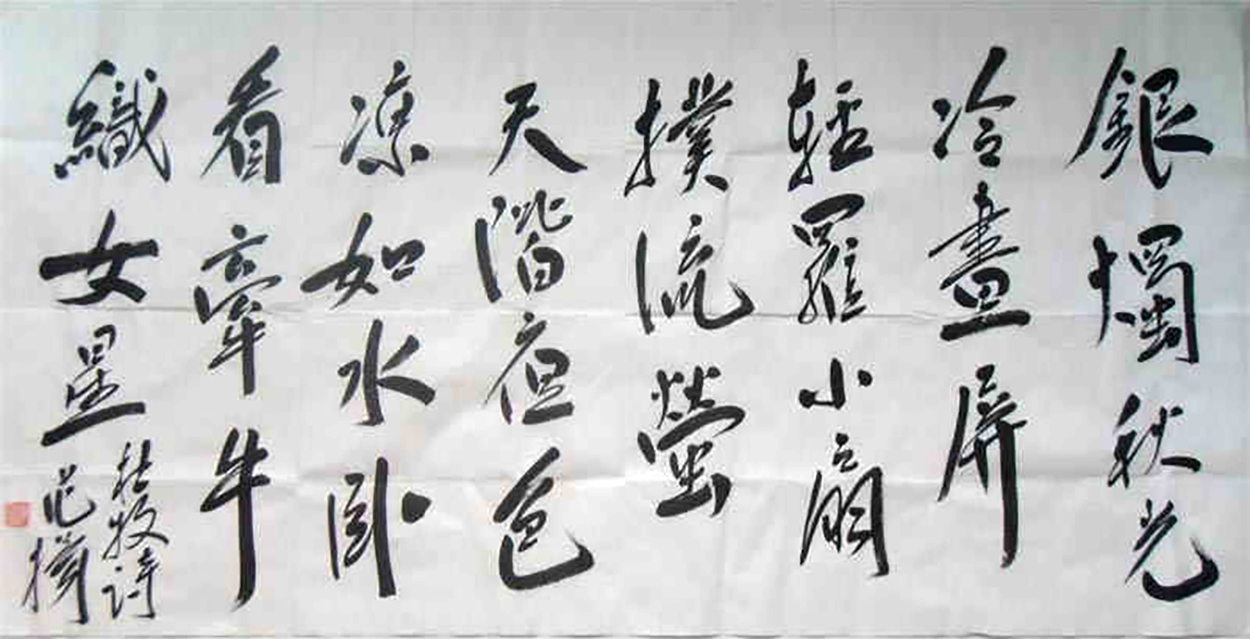 銀燭秋光
冷畫屏
輕羅小扇
撲流螢
天階夜色
凉如水卧
看牽牛
織女星
杜牧诗